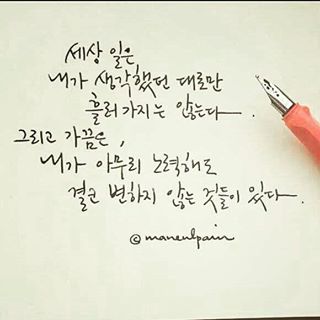 세상 일은
내가 생각했던 대로만
흘러 가지는 않는다.
그리고 가끔은,
내가 아무리 노력해도
결코 변하지 않는 것들이 있다.
©manenlpain